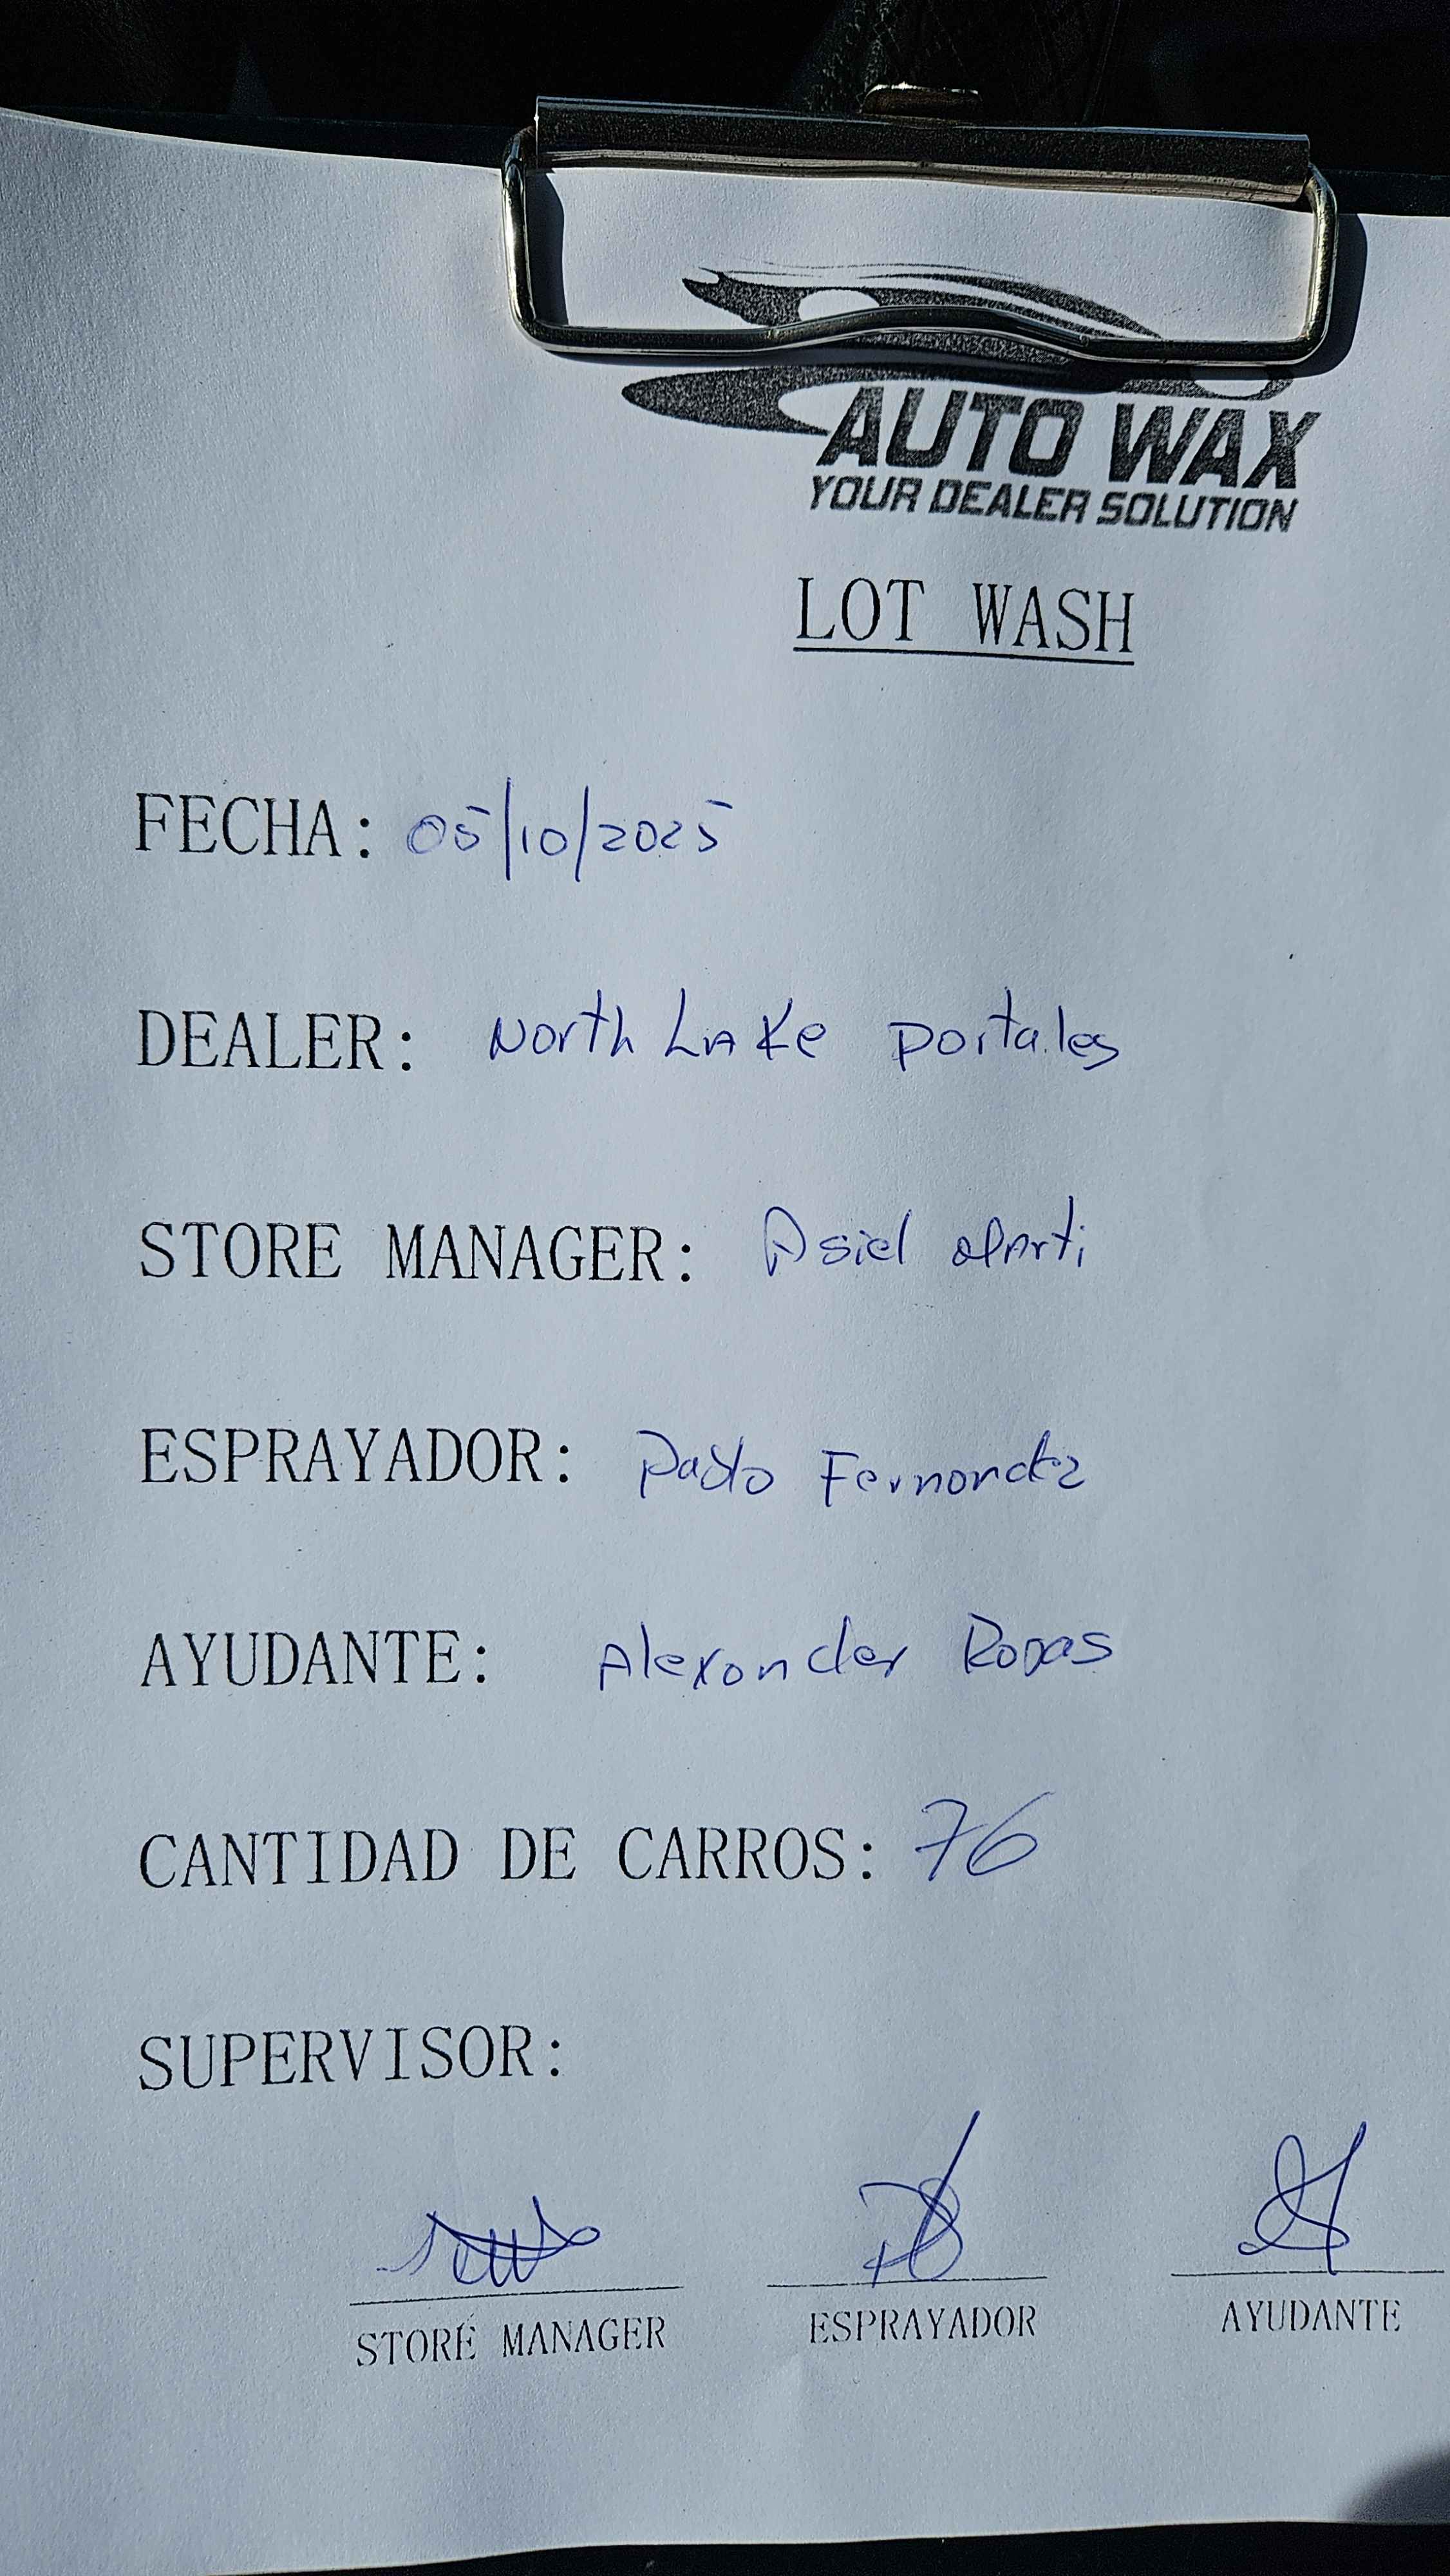 AUTO WAX
YOUR DEALER SOLUTION
LOT WASH
FECHA: 05/10/2025
DEALER: North Lake portales
STORE MANAGER: Asiel
ESPRAYADOR: Pablo Fernandez
AYUDANTE: Alexander Rojas
CANTIDAD DE CARROS: 76
SUPERVISOR:
STORE MANAGER ESPRAYADOR AYUDANTE